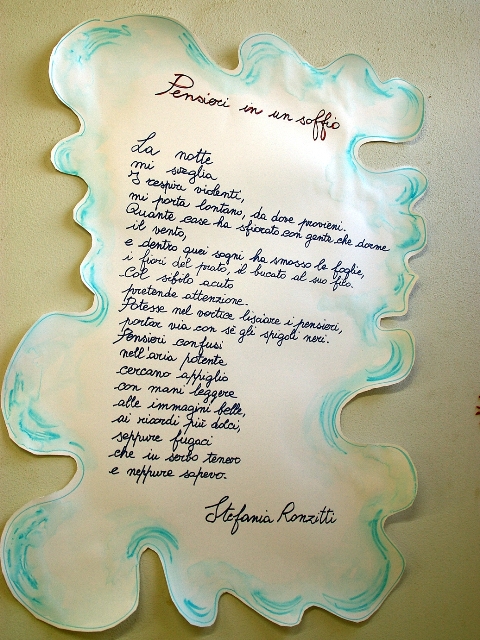 Pensieri in un soffio
La notte
mi sveglia
I respiri violenti,
mi porta lontano, da dove provieni.
Quante case ha sfiorato con gente che dorme
il vento,
e dentro quei sogni ha smosso le foglie,
i fiori del prato, il bucato al suo filo.
Col sibilo acuto
pretende attenzione.
Potesse nel vortice lisciare i pensieri,
portar via con sè gli spigoli neri.
Pensieri confusi
nell'aria potente
cercano appiglio
con mani leggere
alle immagini belle,
ai ricordi più dolci,
seppure fugaci
che in serbo tenevo
e neppure sapevo.
Stefania Ronzitti